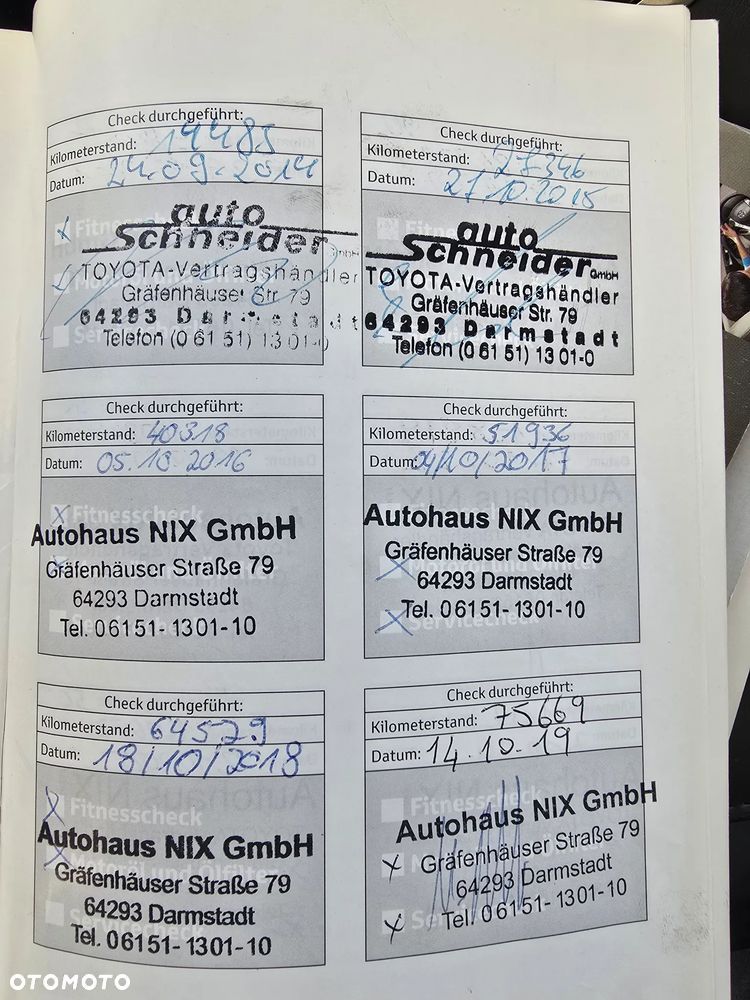 Check durchgeführt:
Kilometerstand: 14485
Datum: 24.09.2014
Fitnesscheck
auto
Schneider GmbH
TOYOTA-Vertragshändler
Gräfenhäuser Str. 79
64293 Darmstadt
Telefon (0 61 51) 13 01-0
Check durchgeführt:
Kilometerstand: 27346
Datum: 21.10.2015
auto
Schneider GmbH
TOYOTA-Vertragshändler
Gräfenhäuser Str. 79
64293 Darmstadt
Telefon (0 61 51) 13 01-0
Check durchgeführt:
Kilometerstand: 40318
Datum: 05.10.2016
Fitnesscheck
Autohaus NIX GmbH
Gräfenhäuser Straße 79
64293 Darmstadt
Tel. 06151-1301-10
Servicecheck
Check durchgeführt:
Kilometerstand: 51936
Datum: 04/10/2017
Autohaus NIX GmbH
Gräfenhäuser Straße 79
64293 Darmstadt
Tel. 06151-1301-10
Servicecheck
Check durchgeführt:
Kilometerstand: 64529
Datum: 18/10/2018
Fitnesscheck
Autohaus NIX GmbH
Gräfenhäuser Straße 79
64293 Darmstadt
Tel. 06151-1301-10
Check durchgeführt:
Kilometerstand: 75669
Datum: 14.10.19
Fitnesscheck
Autohaus NIX GmbH
Gräfenhäuser Straße 79
64293 Darmstadt
Tel. 06151-1301-10
OTOMOTO